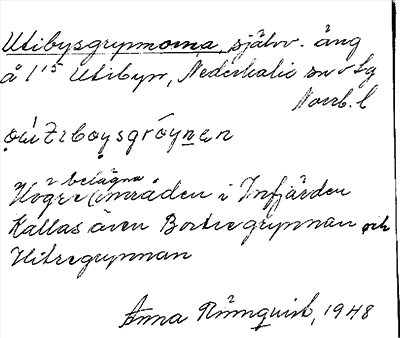 Utibysgrynnorna, självv. äng
å 1¹⁵ Utibyn, Nederkalix sn o lg
Norrb. l
2 belägna
Hoge områden i Infjärden
Kallas även Bortregrynnan och
Hitregrynnan
Anna Rönnquist, 1948